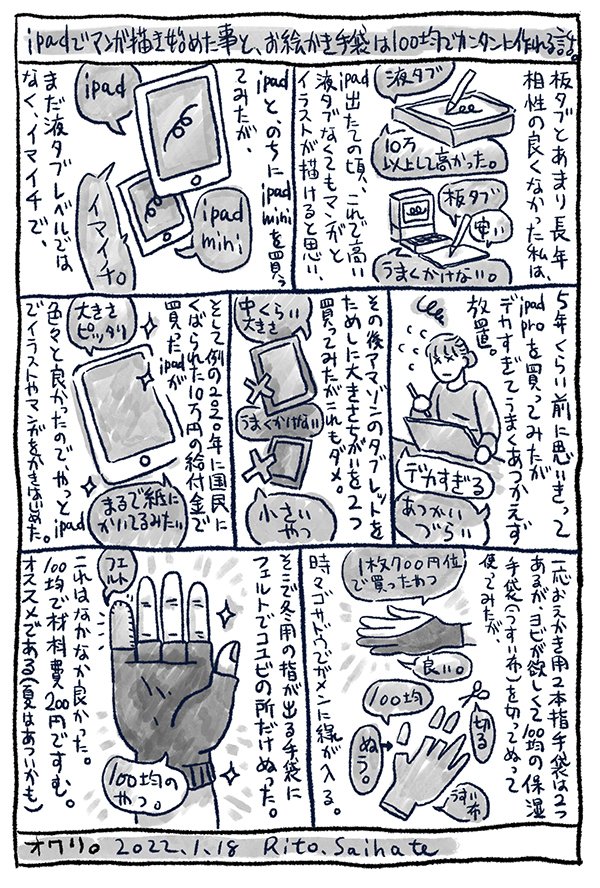 ipadでマンガ描き始めた事と、お絵かき手袋は100均でカンタンに作れる話。
板タブとあまり長年
相性の良くなかった私は、
液タブ
10万
以上して高かった。
板タブ
安い
うまくかけない。
ipad出たての頃、これで高い
液タブなくてもマンガと
イラストが描けると思い、
ipadと、のちにipad miniを買っ
てみたが、
ipad
ipad
mini
イマイチ。
まだ液タブレベルでは
なく、イマイチで、
5年くらい前に思いきって
ipad proを買ってみたが
デカすぎてうまくあつかえず
放置。
デカすぎる
あつかい
づらい
その後アマゾンのタブレットを
ためしに大きさちがいを2つ
買ってみたがこれもダメ。
中くらい
大きさ
うまくかけない
小さい
やつ
そして例の2020年に国民に
くばられた10万円の給付金で
買ったipadが
大きさ
ピッタリ
まるで紙に
かいてるみたい
色々と良かったのでやっとipad
でイラストやマンガをかきはじめた。
一応おえかき用2本指手袋は2つ
あるが、ヨビが欲しくて100均の保湿
手袋(うすい布)を切ってぬって
使ってみたが、
1枚700円位
で買ったやつ
良い。
100均
切る
ぬう。
うすい
布
時マゴサドウでガメンに線が入る。
そこで冬用の指が出る手袋に
フェルトでコユビの所だけぬった。
フェ
ルト
100均の
やつ。
これはなかなか良かった。
100均で材料費200円ですむ。
オススメである(夏はあついかも)
オワリ。 2022.1.18 Rito.Saihate